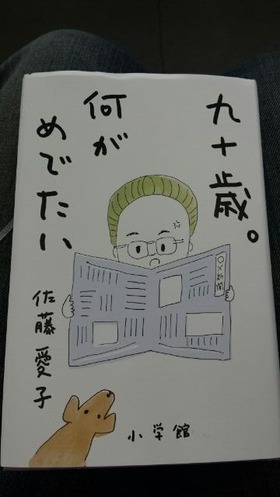 九十歳。
何が
めでたい
佐藤愛子
○×新聞
小学館